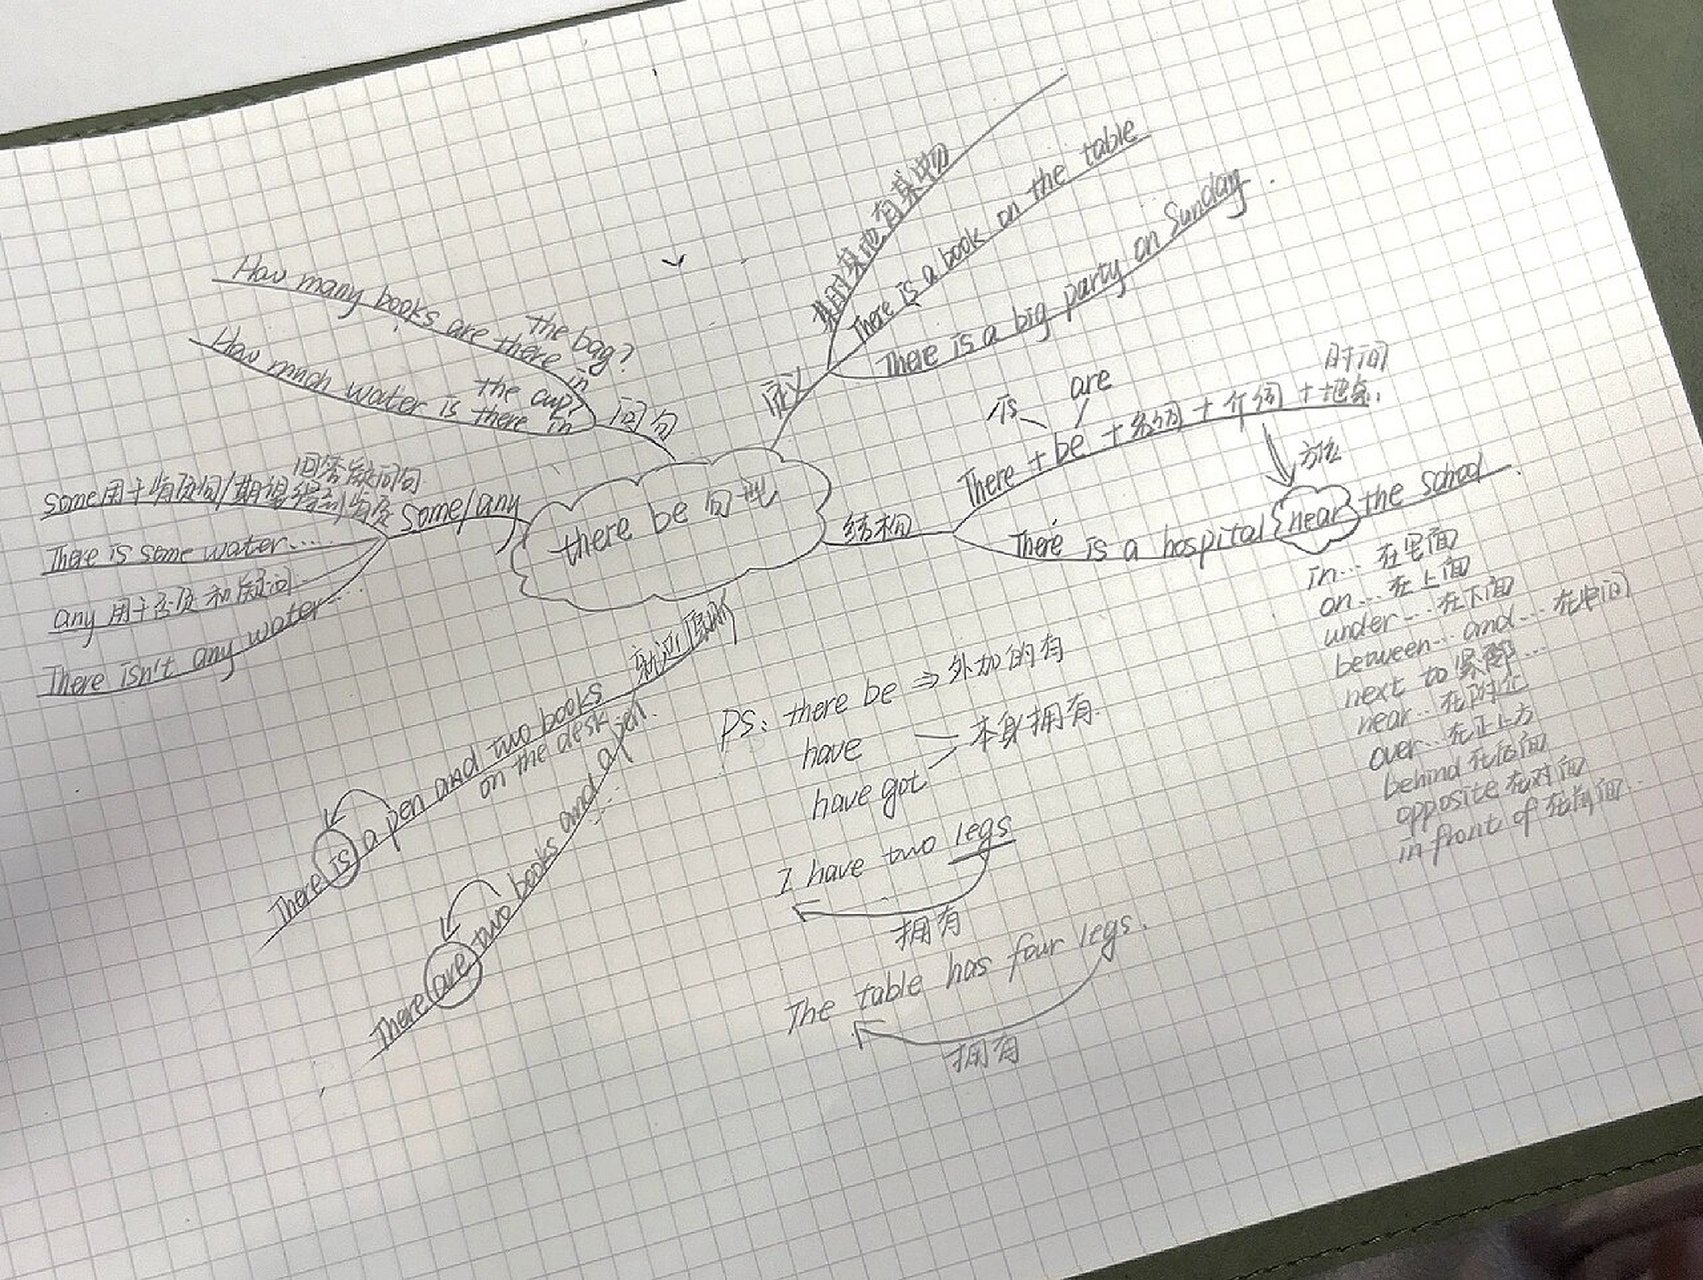 there be 句型
定义
某时某地有某物
There is a book on the table
There is a big party on Sunday.
结构
is are
There + be + 名词 + 介词 + 地点.
时间
方位
There is a hospital near the school.
in... 在里面
on... 在上面
under... 在下面
between... and... 在中间
next to 紧邻...
near... 在附近
over... 在正上方
behind 在后面
opposite 在对面
in front of 在前面...
问句
How many books are there in
the bag?
How much water is there in
the cup?
some/any
回答疑问句
some用于肯定句/期望得到肯定
There is some water....
any 用于否定和疑问.
There isn't any water...
就近原则
There is a pen and two books
on the desk.
There are two books and a pen.
PS: there be ⇒ 外加的有
have
have got
本身拥有.
I have two legs
拥有
The table has four legs.
拥有